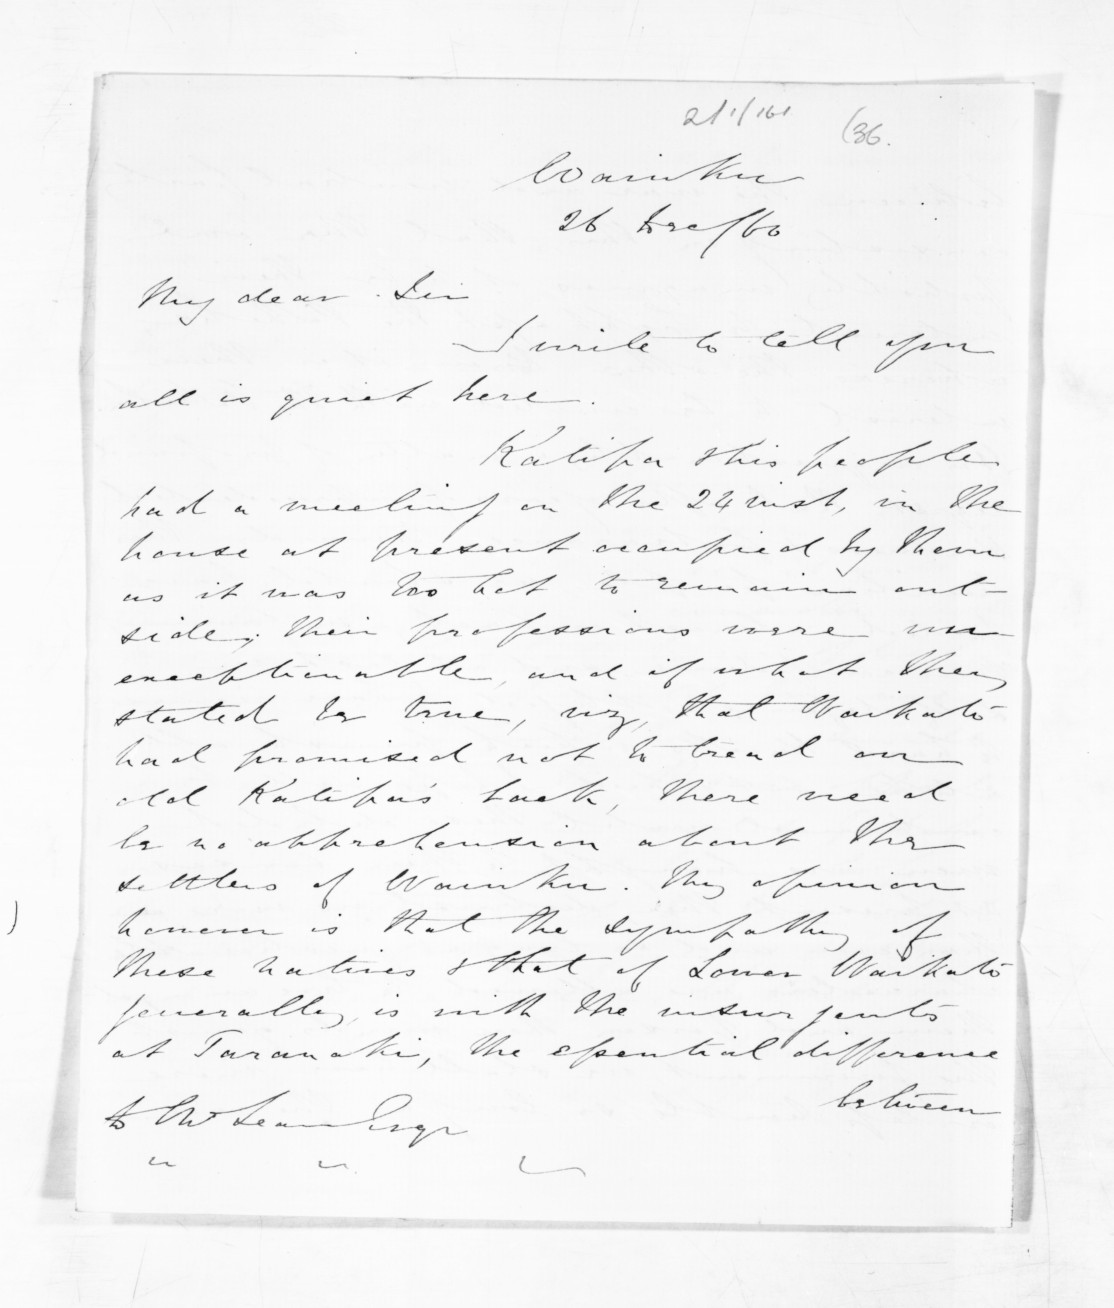 2/1/161
(36.
Waiuku
26 Dec/60
My dear Sir
I write to tell you
all is quiet here.
Katipa & his people
had a meeting on the 24 inst, in the
house at present occupied by them
as it was too hot to remain out-
side; their professions were un-
exceptionable, and if what they
stated be true, viz, that Waikato
had promised not to tread on
old Katipa's back, there need
be no apprehension about the
settlers of Waiuku. My opinion
however is that the sympathy of
these natives & that of Lower Waikato
generally, is with the insurgents
at Taranaki, the essential difference
between
D McLean Esqr
" " "